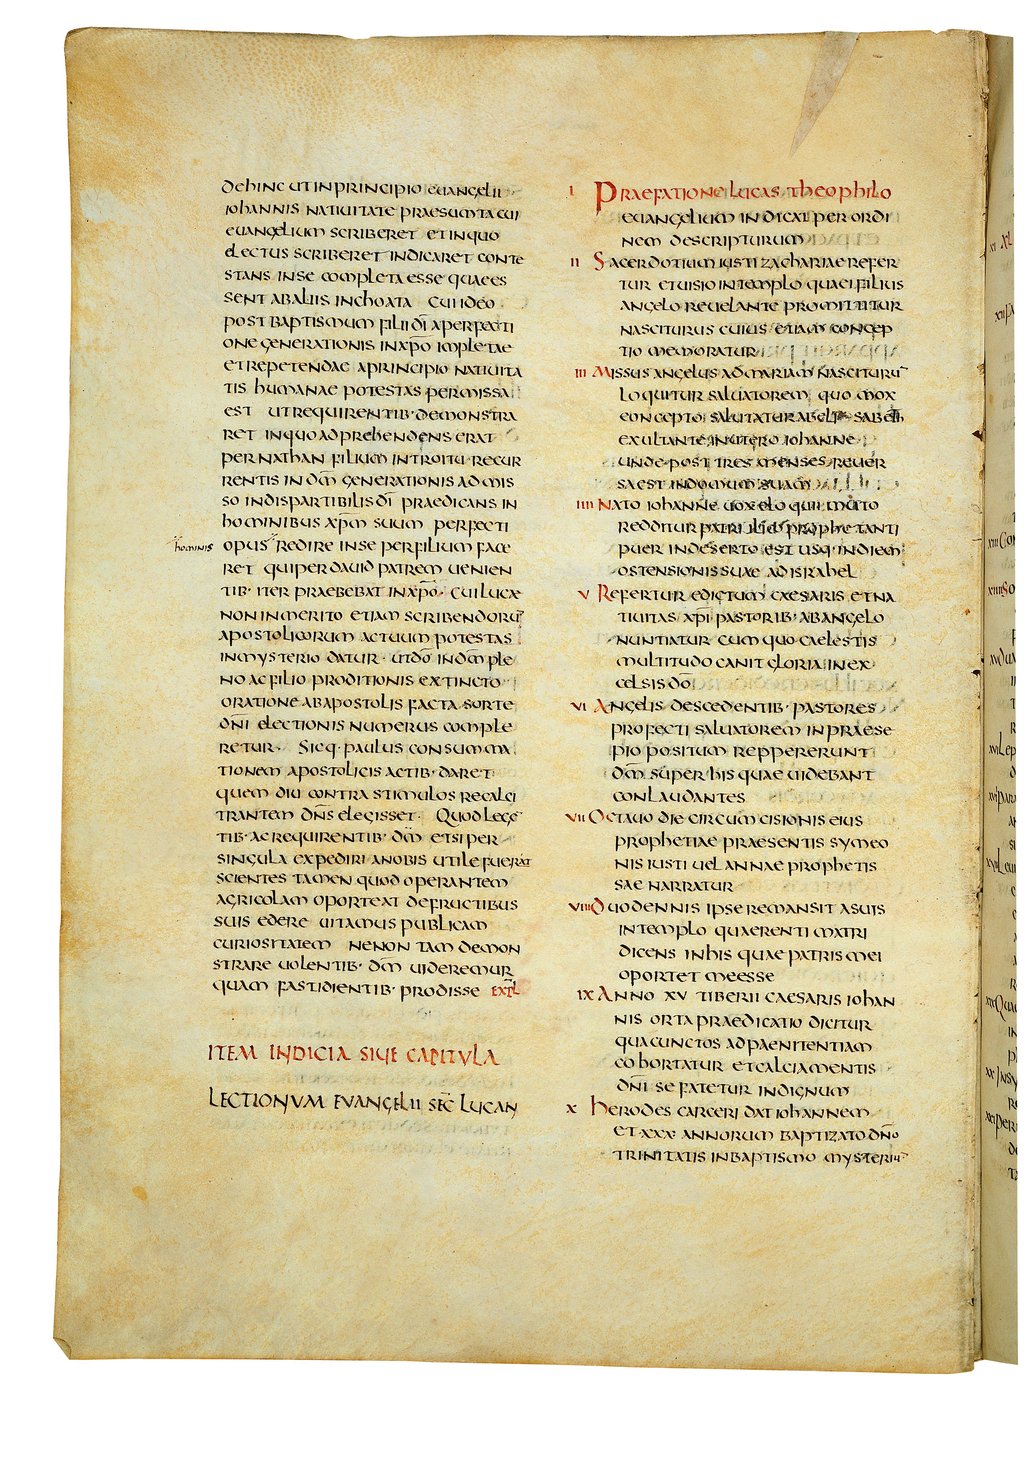 dehinc ut in principio euangelii
iohannis natiuitate praesumta cui
euangelium scriberet et in quo
electus scriberet indicaret conte
stans in se completa esse quae es
sent ab aliis inchoata cui ideo
post baptismum filii d̄i a perfecti
one generationis in xp̄o impletae
et repetendae a principio natiuita
tis humanae potestas permissa
est ut requirentib· demonstra
ret in quo adprehendens erat
per nathan filium introitu recur
rentis in dm̄ generationis admis
so indispartibilis d̄i praedicans in
hominibus xp̄m suum perfecti
hominis opus redire in se per filium face
ret qui per dauid patrem uenien
tib· iter praebebat in xp̄o· cui lucae
non inmerito etiam scribendorū
apostolicorum actuum potestas
in mysterio datur· ut dō in dm̄ ple
no ac filio proditionis extincto
oratione ab apostolis facta sorte
dn̄i electionis numerus comple
retur· Sicq· paulus consumma
tionem apostolicis actib· daret
quem diu contra stimulos recalci
trantem dn̄s elegisset· Quod lege
tib· ac requirentib· dm̄ etsi per
singula expediri a nobis utile fuerat
scientes tamen quod operantem
agricolam oporteat de fructibus
suis edere uitamus publicam
curiositatem ne non tam demon
strare uolentib· dm̄ uideremur
quam fastidientib· prodisse expl̄
ITEM INDICIA SIUE CAPITULA
LECTIONUM EUANGELII SEC̄ LUCAN
I Praefatione lucas theophilo
euangelium indicat per ordi
nem descripturum
II Sacerdotium iusti zachariae refer
tur et uisio in templo qua ei filius
angelo reuelante promittitur
nasciturus cuius etiam concep
tio memoratur
III Missus angelus ad mariam nasciturū
loquitur saluatorem quo mox
concepto salutatur ab elisabeth
exultante in utero iohanne
unde post tres menses reuer
sa est in domum suam
IIII Nato iohanne uox eloquii muto
redditur patri illi et prophetanti
puer in deserto est usq· in diem
ostensionis suae ad israhel
V Refertur edictum caesaris et na
tiuitas xp̄i pastorib· ab angelo
nuntiatur cum quo caelestis
multitudo canit gloria in ex
celsis dō
VI Angelis descedentib· pastores
profecti saluatorem in praese
pio positum reppererunt
dm̄ super his quae uidebant
conlaudantes
VII Octauo die circumcisionis eius
prophetiae praesentis symeo
nis iusti uel annae prophetis
sae narratur
VIII Duodennis ipse remansit a suis
in templo quaerenti matri
dicens in his quae patris mei
oportet me esse
IX Anno XV tiberii caesaris iohan
nis orta praedicatio dicitur
qua cunctos ad paenitentiam
cohortatur et calciamentis
dn̄i se fatetur indignum
X Herodes carceri dat iohannem
et XXX annorum baptizato dn̄o
trinitatis in baptismo mysteriū